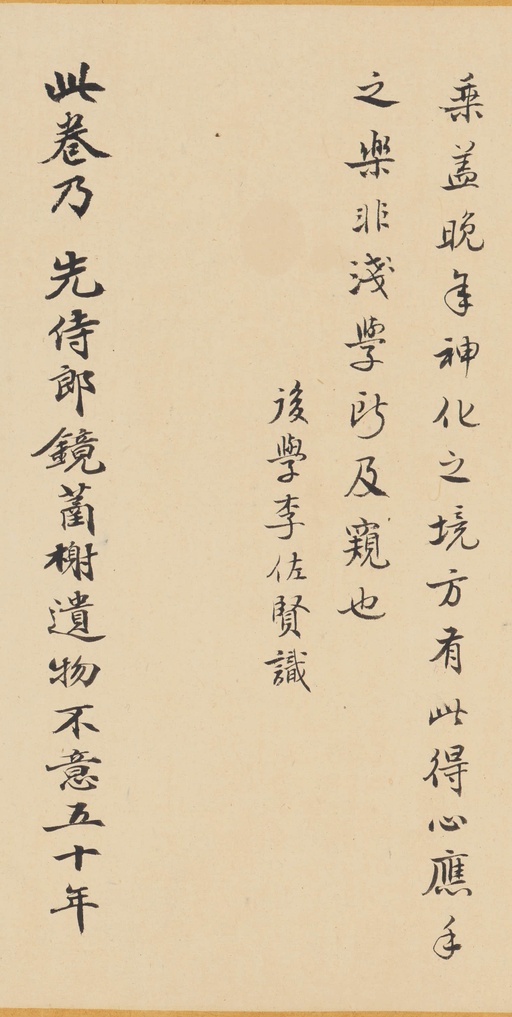 乘蓋晚年神化之境方有此得心應手
之樂非淺學所及窺也
後學李佐賢識
此卷乃 先侍郎鏡菡榭遺物不意五十年